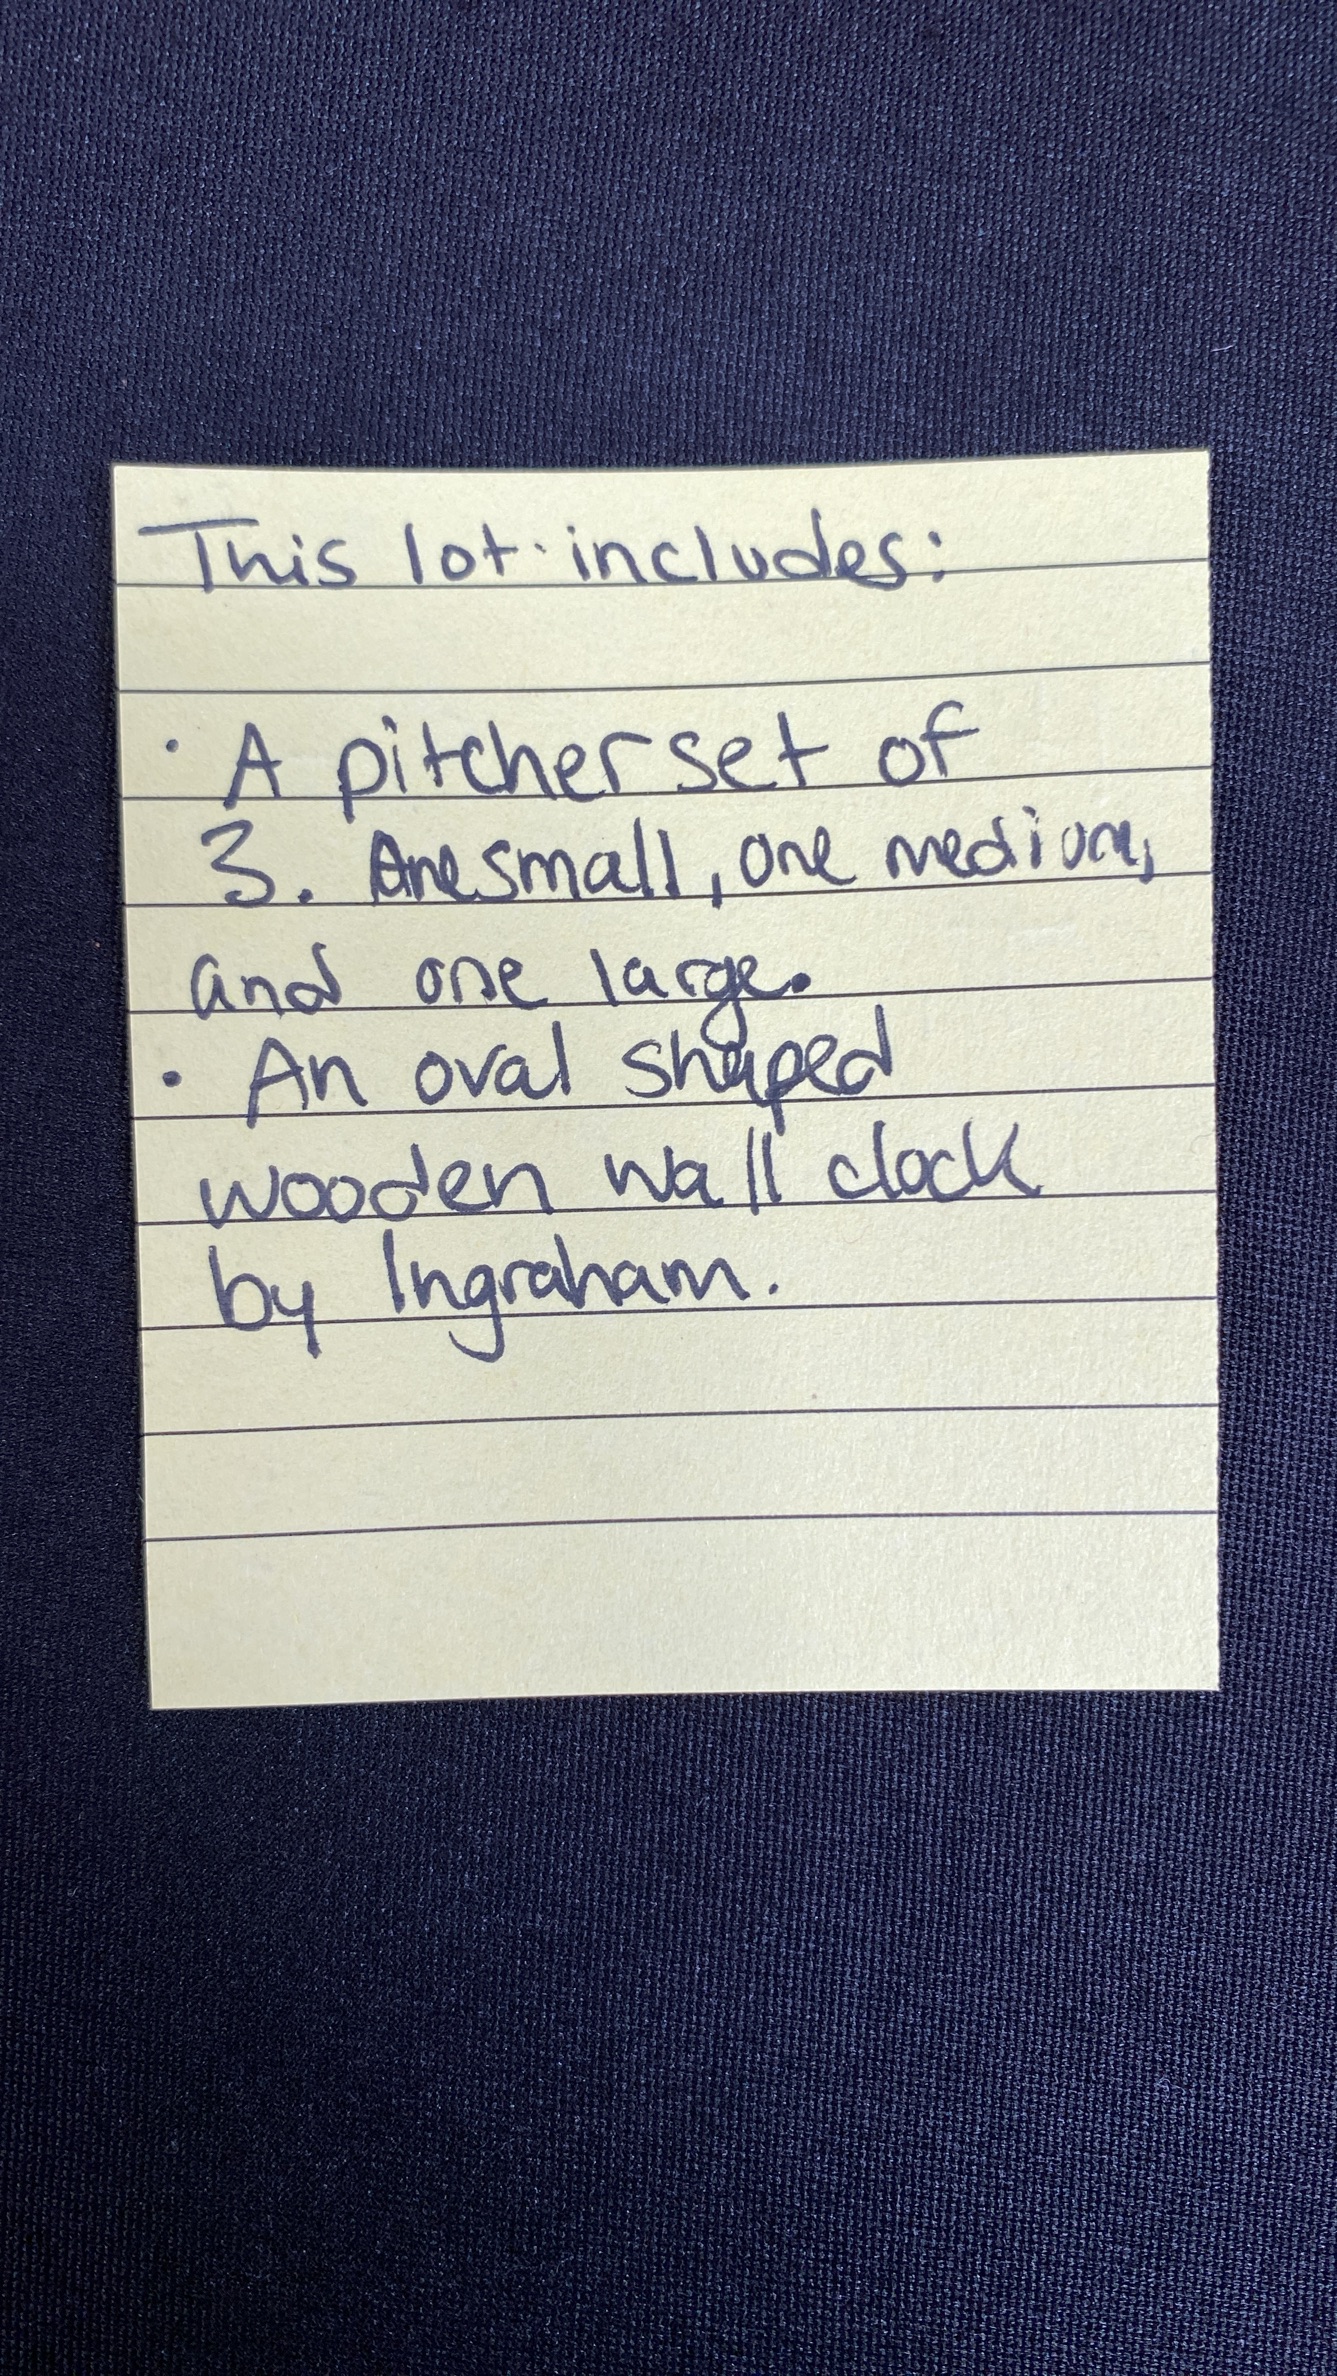 This lot includes:
• A pitcher set of
3. One small, one medium,
and one large.
• An oval shaped
wooden wall clock
by Ingraham.